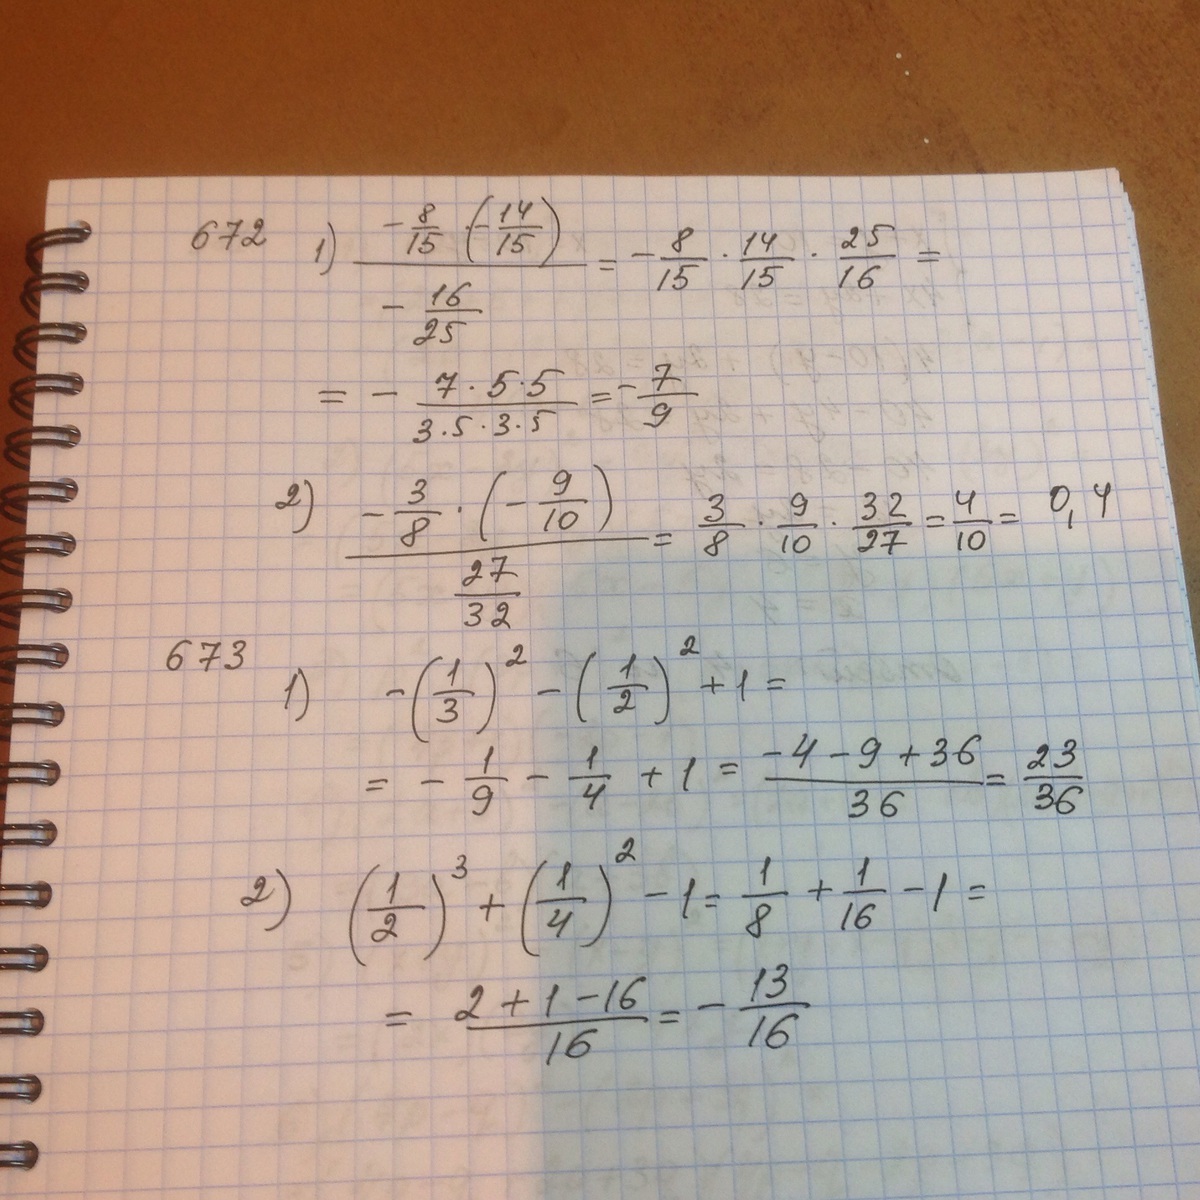 672 1) (-8/15 · (-14/15))/(-16/25) = -8/15 · 14/15 · 25/16 =
= - (7·5·5)/(3·5·3·5) = -7/9
2) (-3/8 · (-9/10))/(27/32) = 3/8 · 9/10 · 32/27 = 4/10 = 0,4
673
1) -(1/3)² - (1/2)² + 1 =
= - 1/9 - 1/4 + 1 = (-4-9+36)/36 = 23/36
2) (1/2)³ + (1/4)² - 1 = 1/8 + 1/16 - 1 =
= (2+1-16)/16 = -13/16